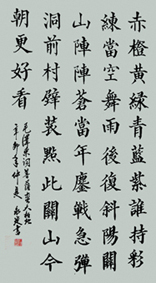 赤橙黃綠青藍紫誰持彩
練當空舞雨後復斜陽關
山陣陣蒼當年鏖戰急彈
洞前村壁裝點此關山今
朝更好看
毛澤東詞菩薩蠻大柏地
辛卯年仲夏